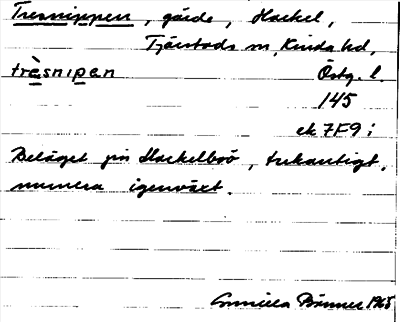 Tresnippen, gärde, Hackel,
Tjärstads sn, Kinda hd,
trèsnipen Östg. l.
145
ek 7F9i
Beläget på Hackelboö, trekantigt,
numera igenväxt.
Gunilla Bonner 1968